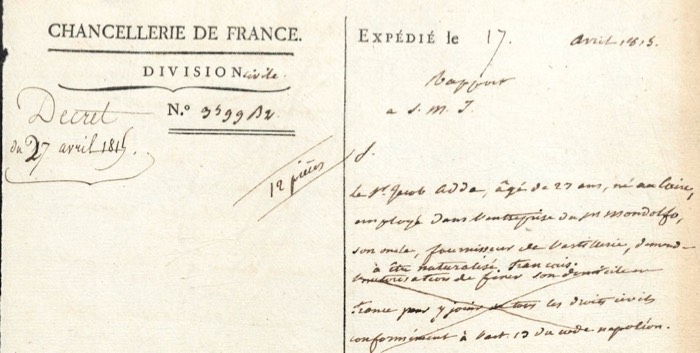 CHANCELLERIE DE FRANCE.
DIVISION civile.
N.º 3599 B2
Decret
du 27 avril 1815.
12 pièces
EXPÉDIÉ le 17. avril 1815.
Rapport
a S. M. I.
S.
Le Sr. Jacob Adda, âgé de 27 ans, né au Caire,
employé dans l'entreprise du Sr Mondolfo,
son oncle, fournisseur de l'artillerie, demande
à être naturalisé français.
l'autorisation de fixer son domicile en
France pour y jouir de tous les droits civils
conformément à l'art. 13 du code napoléon.